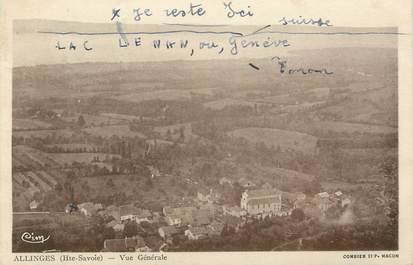 x je reste Ici suisse
LAC LEMAN, ou, Genève
Tonon
CIM
ALLINGES (Hte-Savoie) — Vue Générale
COMBIER IMP. MACON